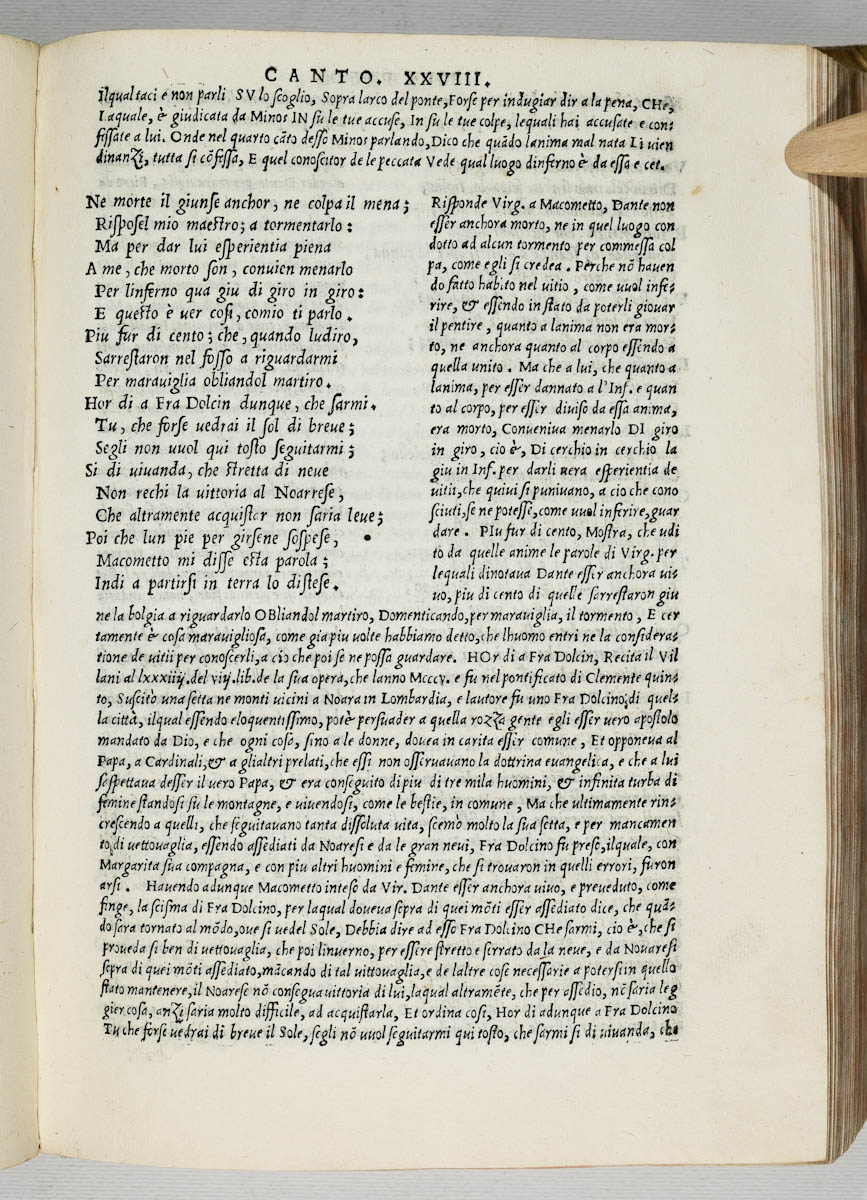 CANTO. XXVIII.
ilqual taci e non parli SV lo scoglio, Sopra larco del ponte, Forse per indugiar dir a la pena, CHe,
Laquale, è giudicata da Minos IN su le tue accuse, In su le tue colpe, lequali hai accusate e con⸗
fissate a lui. Onde nel quarto cãto desso Minos parlando, Dico che quãdo lanima mal nata Li vien
dinanzi, tutta si cõfessa, E quel conoscitor de le peccata Vede qual luogo dinferno è da essa e cet.
Ne morte il giunse anchor, ne colpa il mena;
Rispose'l mio maestro; a tormentarlo:
Ma per dar lui esperientia piena
A me, che morto son, convien menarlo
Per linferno qua giu di giro in giro:
E questo è ver cosi, comio ti parlo.
Piu fur di cento; che, quando ludiro,
Sarrestaron nel fosso a riguardarmi
Per maraviglia obliandol martiro.
Hor di a Fra Dolcin dunque, che sarmi.
Tu, che forse uedrai il sol di breve;
Segli non vuol qui tosto seguitarmi;
Si di vivanda, che stretta di neve
Non rechi la vittoria al Noarrese,
Che altramente acquistar non saria leve;
Poi che lun pie per girsene sospese,
Macometto mi disse esta parola;
Indi a partirsi in terra lo distese.
Risponde Virg. a Macometto, Dante non
esser anchora morto, ne in quel luogo con
dotto ad alcun tormento per commessa col
pa, come egli si credea. Perche nõ haven
do fatto habito nel vitio, come vuol infe⸗
rire, & essendo in stato da poterli giovar
il pentire, quanto a lanima non era mor⸗
to, ne anchora quanto al corpo essendo a
quella unito. Ma che a lui, che quanto a
lanima, per esser dannato a l'Inf. e quan
to al corpo, per esser diviso da essa anima,
era morto, Conveniva menarlo DI giro
in giro, cio è, Di cerchio in cerchio la
giu in Inf. per darli vera esperientia de
vitii, che quivi si punivano, a cio che cono
sciuti, se ne potesse, come vuol inferire, guar
dare. PIu fur di cento, Mostra, che udi
to da quelle anime le parole di Virg. per
lequali dinotava Dante esser anchora vi⸗
vo, piu di cento di quelle sarrestaron giu
ne la bolgia a riguardarlo OBliandol martiro, Domenticando, per maraviglia, il tormento, E cer
tamente è cosa maravigliosa, come gia piu volte habbiamo detto, che lhuomo entri ne la considera⸗
tione de vitii per conoscerli, a cio che poi se ne possa guardare. HOr di a Fra Dolcin, Recita il Vil
lani al lxxxiiij. del viij. lib. de la sua opera, che lanno Mcccv. e fu nel pontificato di Clemente quin⸗
to, Suscitò una setta ne monti vicini a Noara in Lombardia, e lautore fu uno Fra Dolcino, di quel⸗
la città, ilqual essendo eloquentissimo, potè persuader a quella rozza gente egli esser vero apostolo
mandato da Dio, e che ogni cosa, sino a le donne, dovea in carita esser comune, Et opponeva al
Papa, a Cardinali, & a glialtri prelati, che essi non osservavano la dottrina evangelica, e che a lui
sespettava desser il vero Papa, & era conseguito di piu di tre mila huomini, & infinita turba di
femine standosi su le montagne, e vivendosi, come le bestie, in comune, Ma che ultimamente rin⸗
crescendo a quelli, che seguitavano tanta dissoluta vita, scemò molto la sua setta, e per mancamen
to di vettovaglia, essendo assediati da Noaresi e da le gran nevi, Fra Dolcino fu preso, ilquale, con
Margarita sua compagna, e con piu altri huomini e femine, che si trovaron in quelli errori, furon
arsi. Havendo adunque Macometto inteso da Vir. Dante esser anchora vivo, e preveduto, come
finge, la scisma di Fra Dolcino, per laqual doveva sepra di quei mõti esser assediato dice, che quã⸗
do sara tornato al mõdo, ove si vedel Sole, Debbia dire ad esso Fra Dolcino CHe sarmi, cio è, che si
proveda si ben di vettovaglia, che poi linverno, per essere stretto e serrato da la neve, e da Novaresi
sepra di quei mõti assediato, mãcando di tal vittovaglia, e de laltre cose necessarie a potersi in quello
stato mantenere, il Noarese nõ consegua vittoria di lui, laqual altramẽte, che per assedio, nõ saria leg
gier cosa, anzi saria molto difficile, ad acquistarla, Et ordina cosi, Hor di adunque a Fra Dolcino
Tu che forse vedrai di breve il Sole, segli nõ vuol seguitarmi qui tosto, che sarmi si di vivanda, che